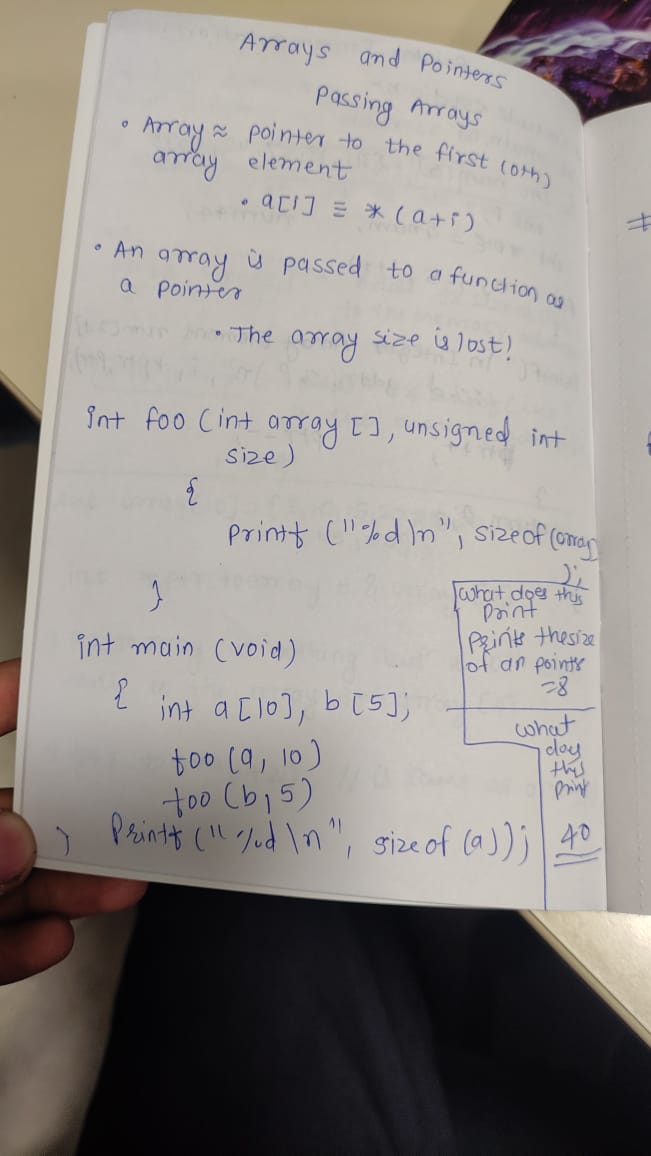 Arrays and Pointers
Passing Arrays
• Array ≈ pointer to the first (0th)
array element
• a[i] ≡ *(a+i)
• An array is passed to a function as
a pointer
• The array size is lost!
int foo (int array [], unsigned int
size)
{
printf ("%d\n", sizeof(array)
);
}
what does this
print
prints the size
of an points
=8
int main (void)
{ int a[10], b[5];
foo (a, 10)
foo (b, 5)
} Printf ("%d\n", sizeof (a));
what
does
this
print
40